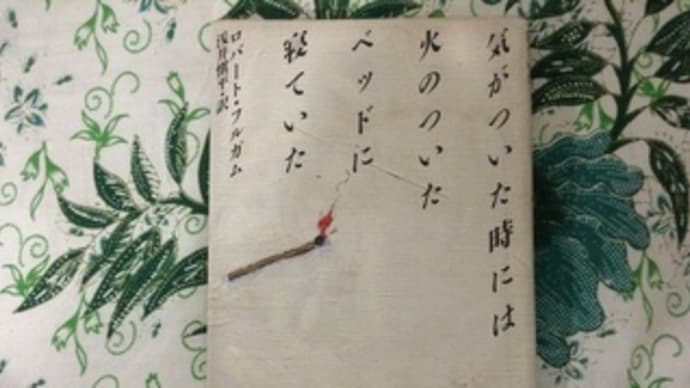 気がついた時には
火のついた
ベッドに
寝ていた
ロバート・フルガム
浅井愼平訳